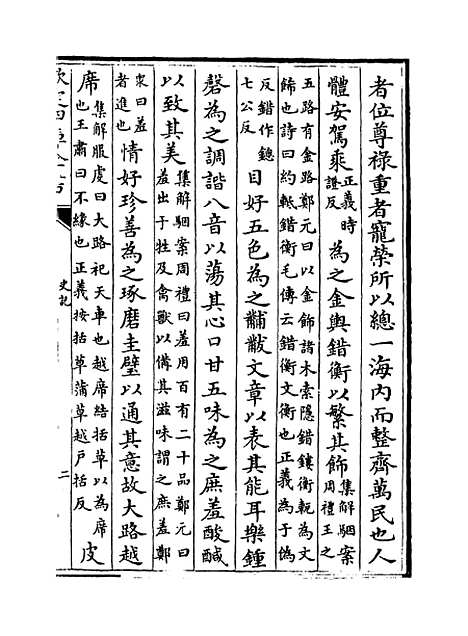 者位尊祿重者寵榮所以總一海內而整齊萬民也人
體安駕乘正義時證反為之金輿錯衡以繁其飾集解駰案周禮王之
五路有金路鄭元曰以金飾諸木索隱錯鏤衡軛為文
飾也詩曰約軝錯衡毛傳云錯衡文衡也正義為于偽
反錯作鏓七公反目好五色為之黼黻文章以表其能耳樂鍾
磬為之調諧八音以蕩其心口甘五味為之庶羞酸鹹
以致其美集解駰案周禮曰羞用百有二十品鄭元曰羞出于牲及禽獸以備其滋味謂之庶羞鄭
衆曰羞者進也情好珍善為之琢磨圭璧以通其意故大路越
席集解服虔曰大路祀天車也越席結括草以為席也王肅曰不緣也正義按括草蒲草越戶括反皮
史記
二